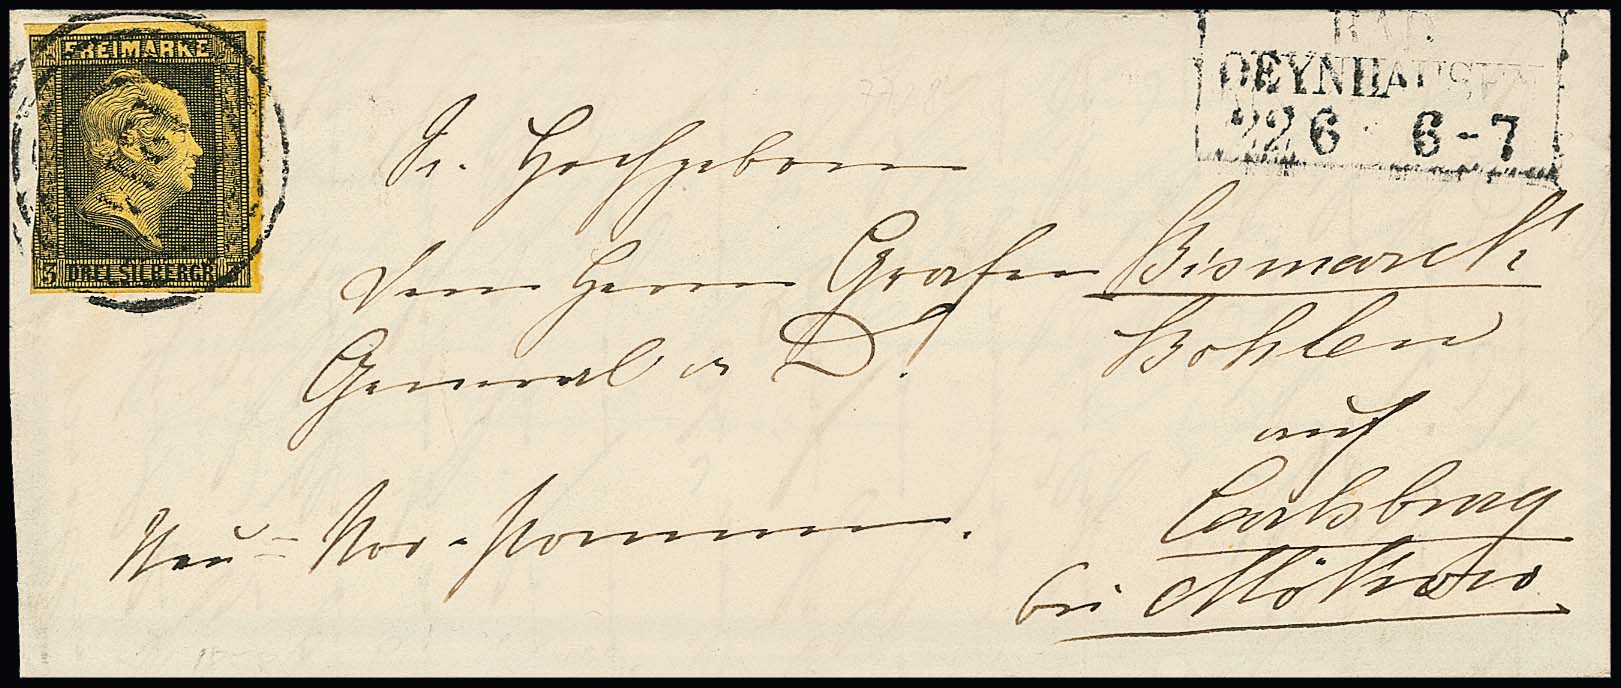 FREIMARKE
3 DREI SILBERGR. 3
BAD
OEYNHAUSEN
22 6 6-7
Sr. Hochgeboren
dem Herrn Grafen Bismarck
General a. D. Bohlen
auf
Carlsburg
Neu-Vor-Pommern.
bei Möckow